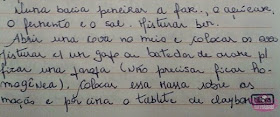 Numa bacia peneirar a far., o açúcar,
o fermento e o sal. Misturar bem.
Abrir uma cova no meio e colocar os ovos
misturar c/ um garfo ou batedor de arame p/
ficar uma farofa (não precisa ficar ho-
mogênea). Colocar essa massa sobre as
maçãs e por cima o tablete de claybom